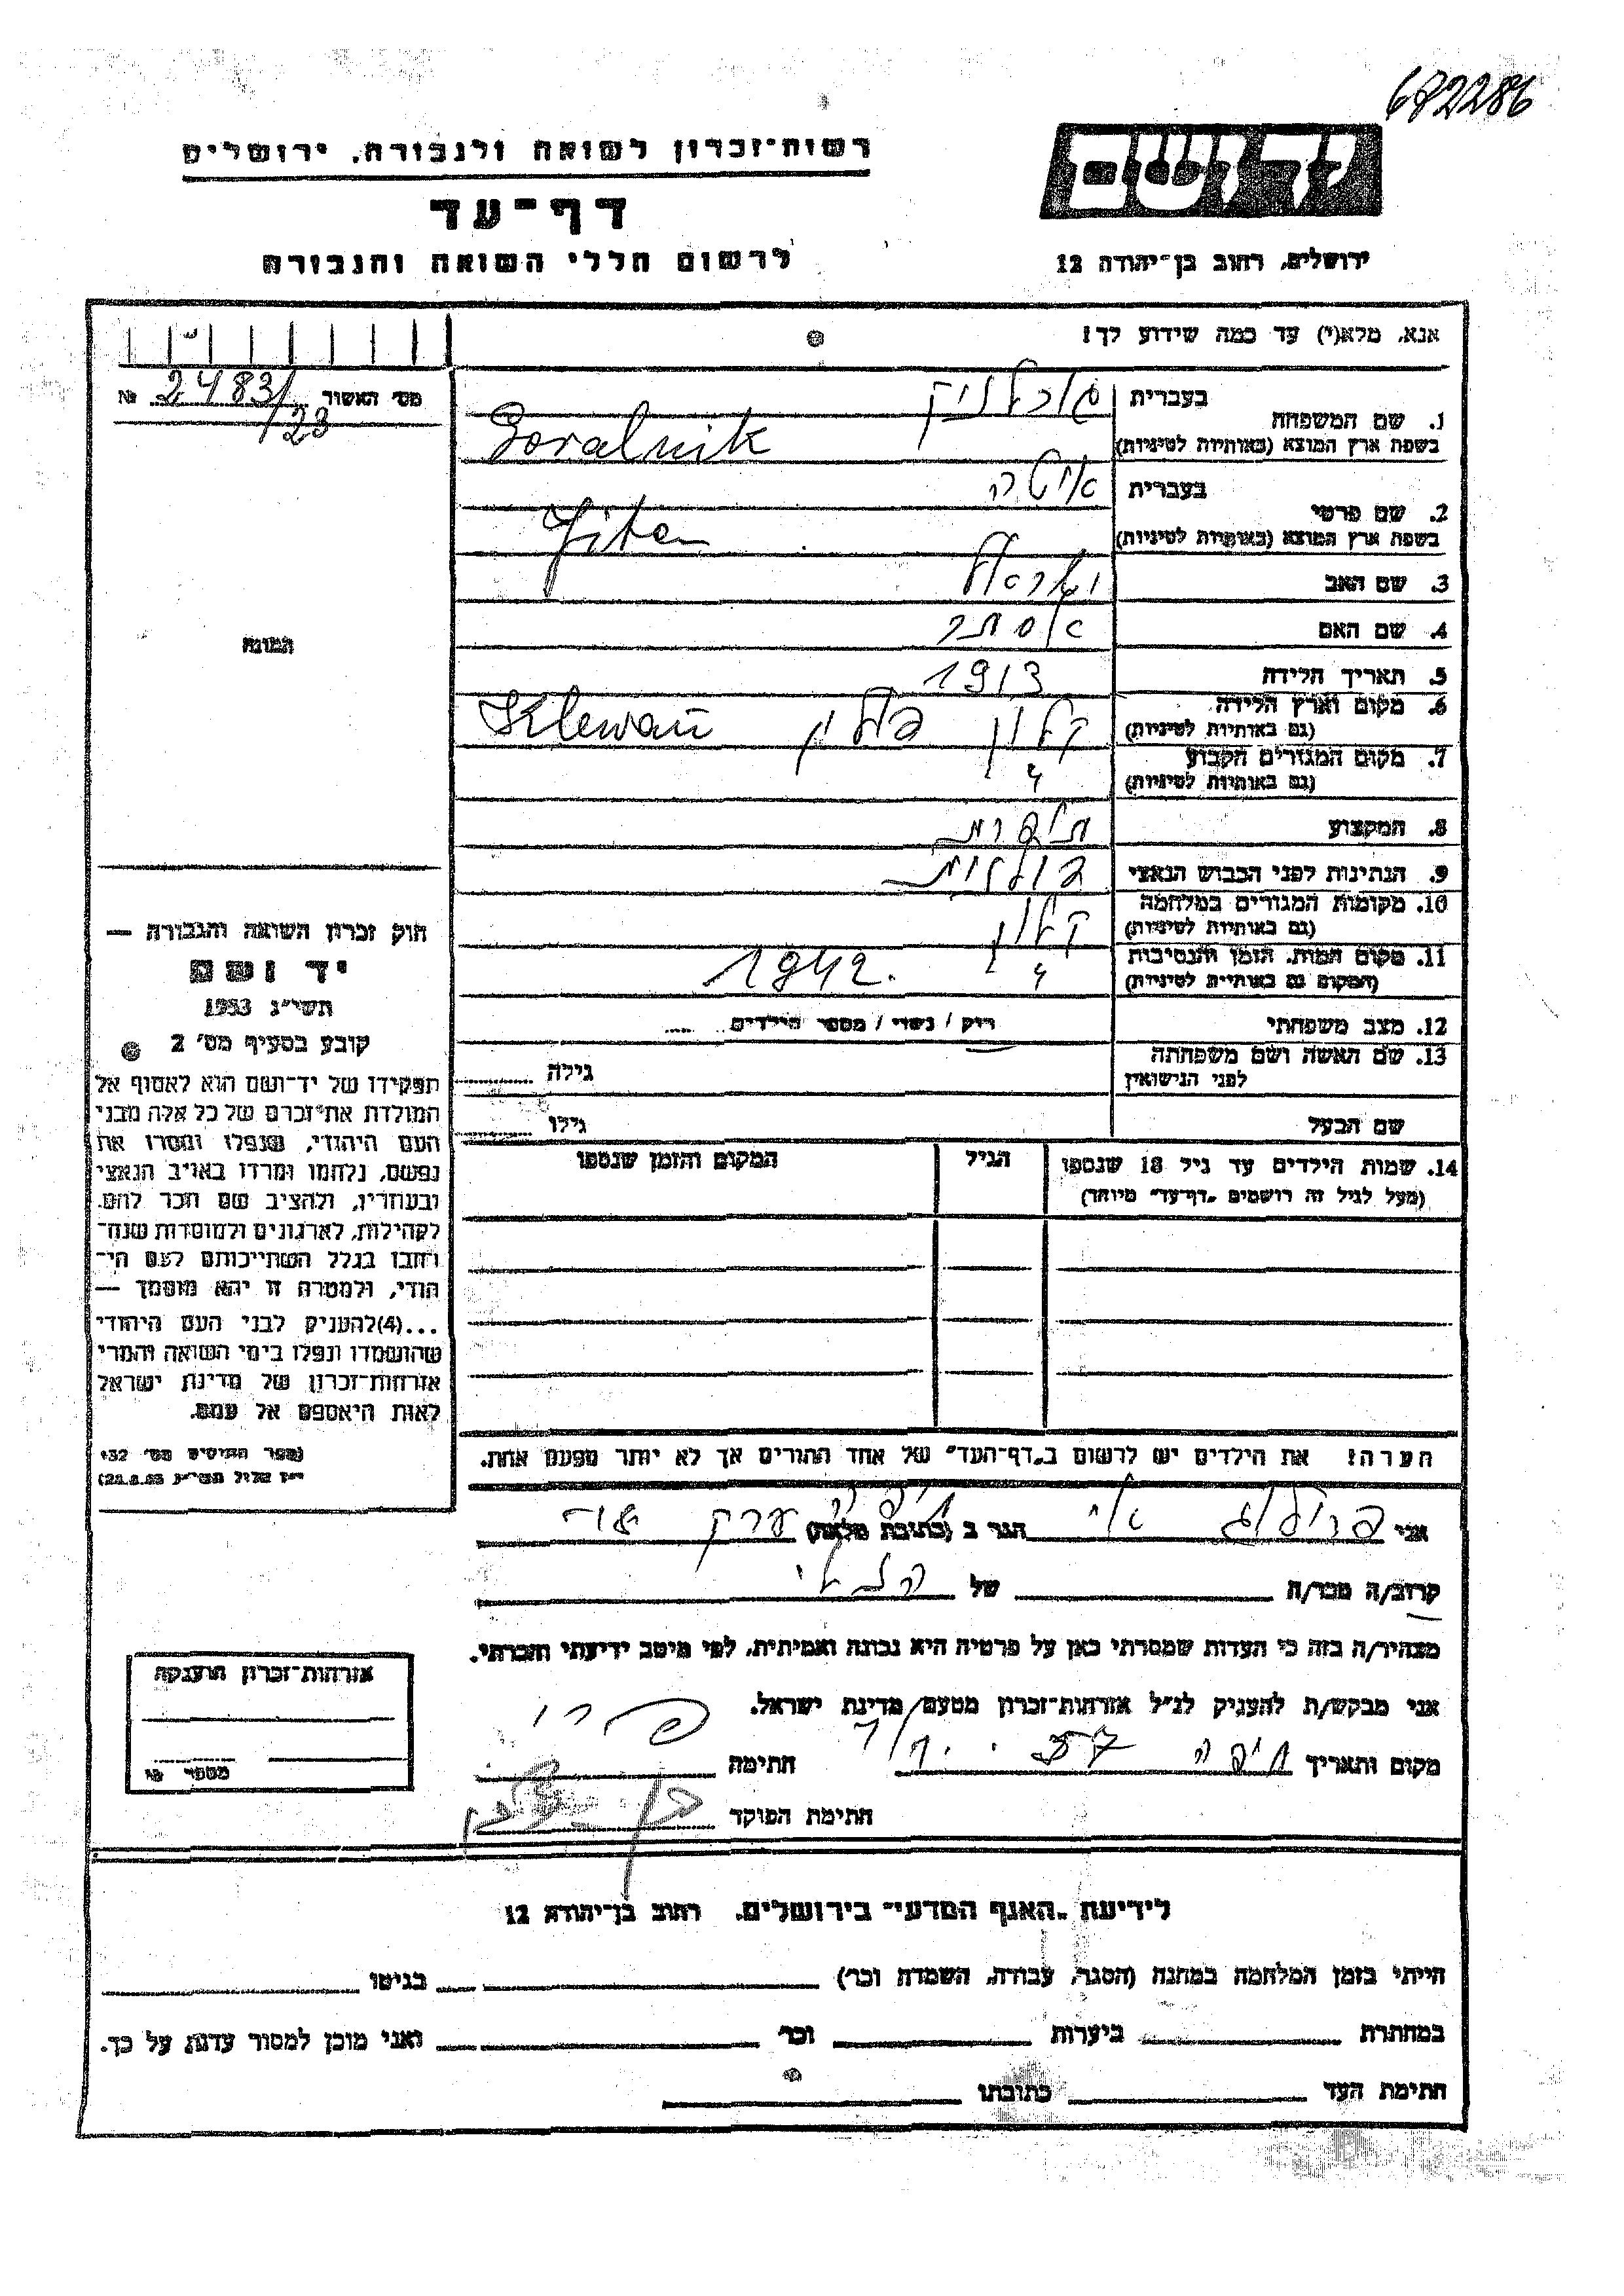 672286
רשות-זכרון לשואה ולגבורה, ירושלים
יד ושם
דף-עד
לרשום חללי השואה והגבורה
ירושלים, רחוב בן-יהודה 12
אנא, מלא(י) עד כמה שידוע לך!
מס׳ האשור 2483/ №
/23
1. שם המשפחה
בעברית גורלניק
בשפת ארץ המוצא (באותיות לטיניות) Goralnik
2. שם פרטי
בעברית איטה
בשפת ארץ המוצא (באותיות לטיניות) Jita
3. שם האב ישראל
4. שם האם אסתר
5. תאריך הלידה 1913
6. מקום וארץ הלידה (גם באותיות לטיניות) קלון פולין Klewań
7. מקום המגורים הקבוע (גם באותיות לטיניות) "
8. המקצוע תופרת
9. הנתינות לפני הכבוש הנאצי פולנית
10. מקומות המגורים במלחמה (גם באותיות לטיניות) קלון
11. מקום המות, הזמן והנסיבות (המקום גם באותיות לטיניות) " 1942.
12. מצב משפחתי רוק / נשוי / מספר הילדים
13. שם האשה ושם משפחתה לפני הנישואין גילה
שם הבעל גילו
14. שמות הילדים עד גיל 18 שנספו הגיל המקום והזמן שנספו
(מעל לגיל זה רושמים „דף-עד” מיוחד)
הערה! את הילדים יש לרשום ב„דף-העד” של אחד ההורים אך לא יותר מפעם אחת.
התמונה
חוק זכרון השואה והגבורה —
יד ושם
תשי״ג 1953
קובע בסעיף מס׳ 2
תפקידו של יד-ושם הוא לאסוף אל
המולדת את זכרם של כל אלה מבני
העם היהודי, שנפלו ומסרו את
נפשם, נלחמו ומרדו באויב הנאצי
ובעוזריו, ולהציב שם וזכר להם,
לקהילות, לארגונים ולמוסדות שנח-
רבו בגלל השתייכותם לעם הי-
הודי, ולמטרה זו יהא מוסמך —
...(4) להעניק לבני העם היהודי
שהושמדו ונפלו בימי השואה והמרי
אזרחות-זכרון של מדינת ישראל
לאות היאספם אל עמם.
(ספר החוקים מס׳ 132
י״ז אלול תשי״ג 28.8.53)
חיפה
אני הגר ב (כתובת מלאה)
קרוב/ה מכר/ה של הנ״ל
מצהיר/ה בזה כי העדות שמסרתי כאן על פרטיה היא נכונה ואמיתית, לפי מיטב ידיעתי והכרתי.
אני מבקש/ת להעניק לנ״ל אזרחות-זכרון מטעם מדינת ישראל.
מקום ותאריך חיפה חתימה
חתימת הפוקד
אזרחות-זכרון הוענקה
מספר
לידיעת „האגף המדעי” בירושלים, רחוב בן-יהודה 12
הייתי בזמן המלחמה במחנה (הסגר, עבודה, השמדה וכו׳) בגיטו
במחתרת ביערות וכו׳ ואני מוכן למסור עדות על כך.
חתימת העד כתובתו